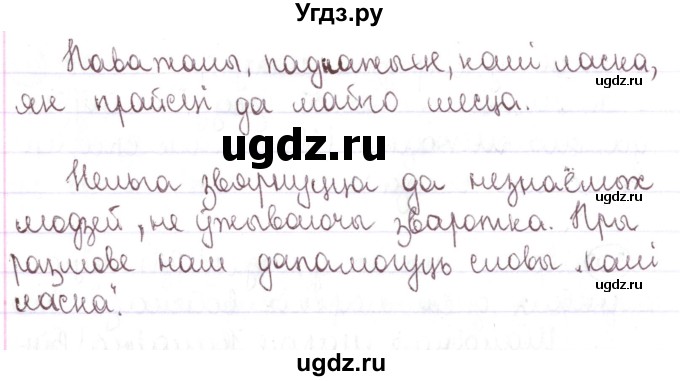 Угдз.ру
Паважаны, падкажыце, калі ласка,
як прайсці да майго месца.
ugdz.ru
Нельга звярнуцца да незнаёмых
людзей, не ўжываючы зваротка. Пры
размове нам дапамогуць словы „калі
ласка“.
ugdz.ru